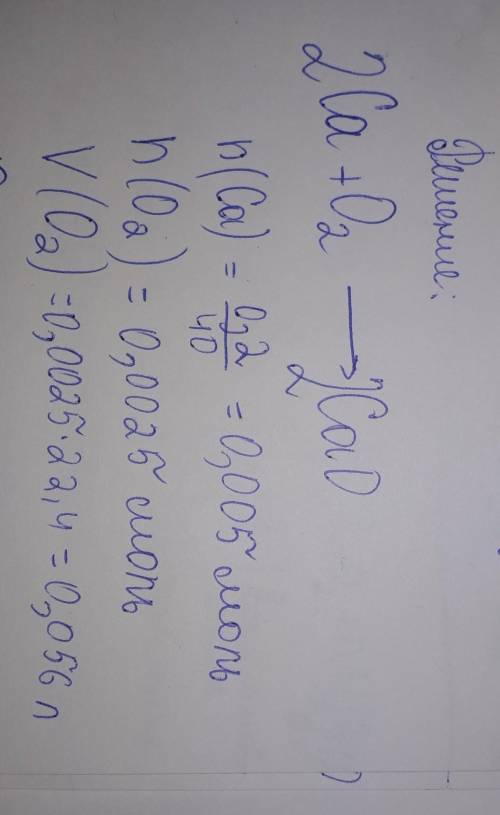 Решение:
2Ca + O₂ → 2CaO
n(Ca) = 0,2/40 = 0,005 моль
n(O₂) = 0,0025 моль
V(O₂) = 0,0025·22,4 = 0,056 л